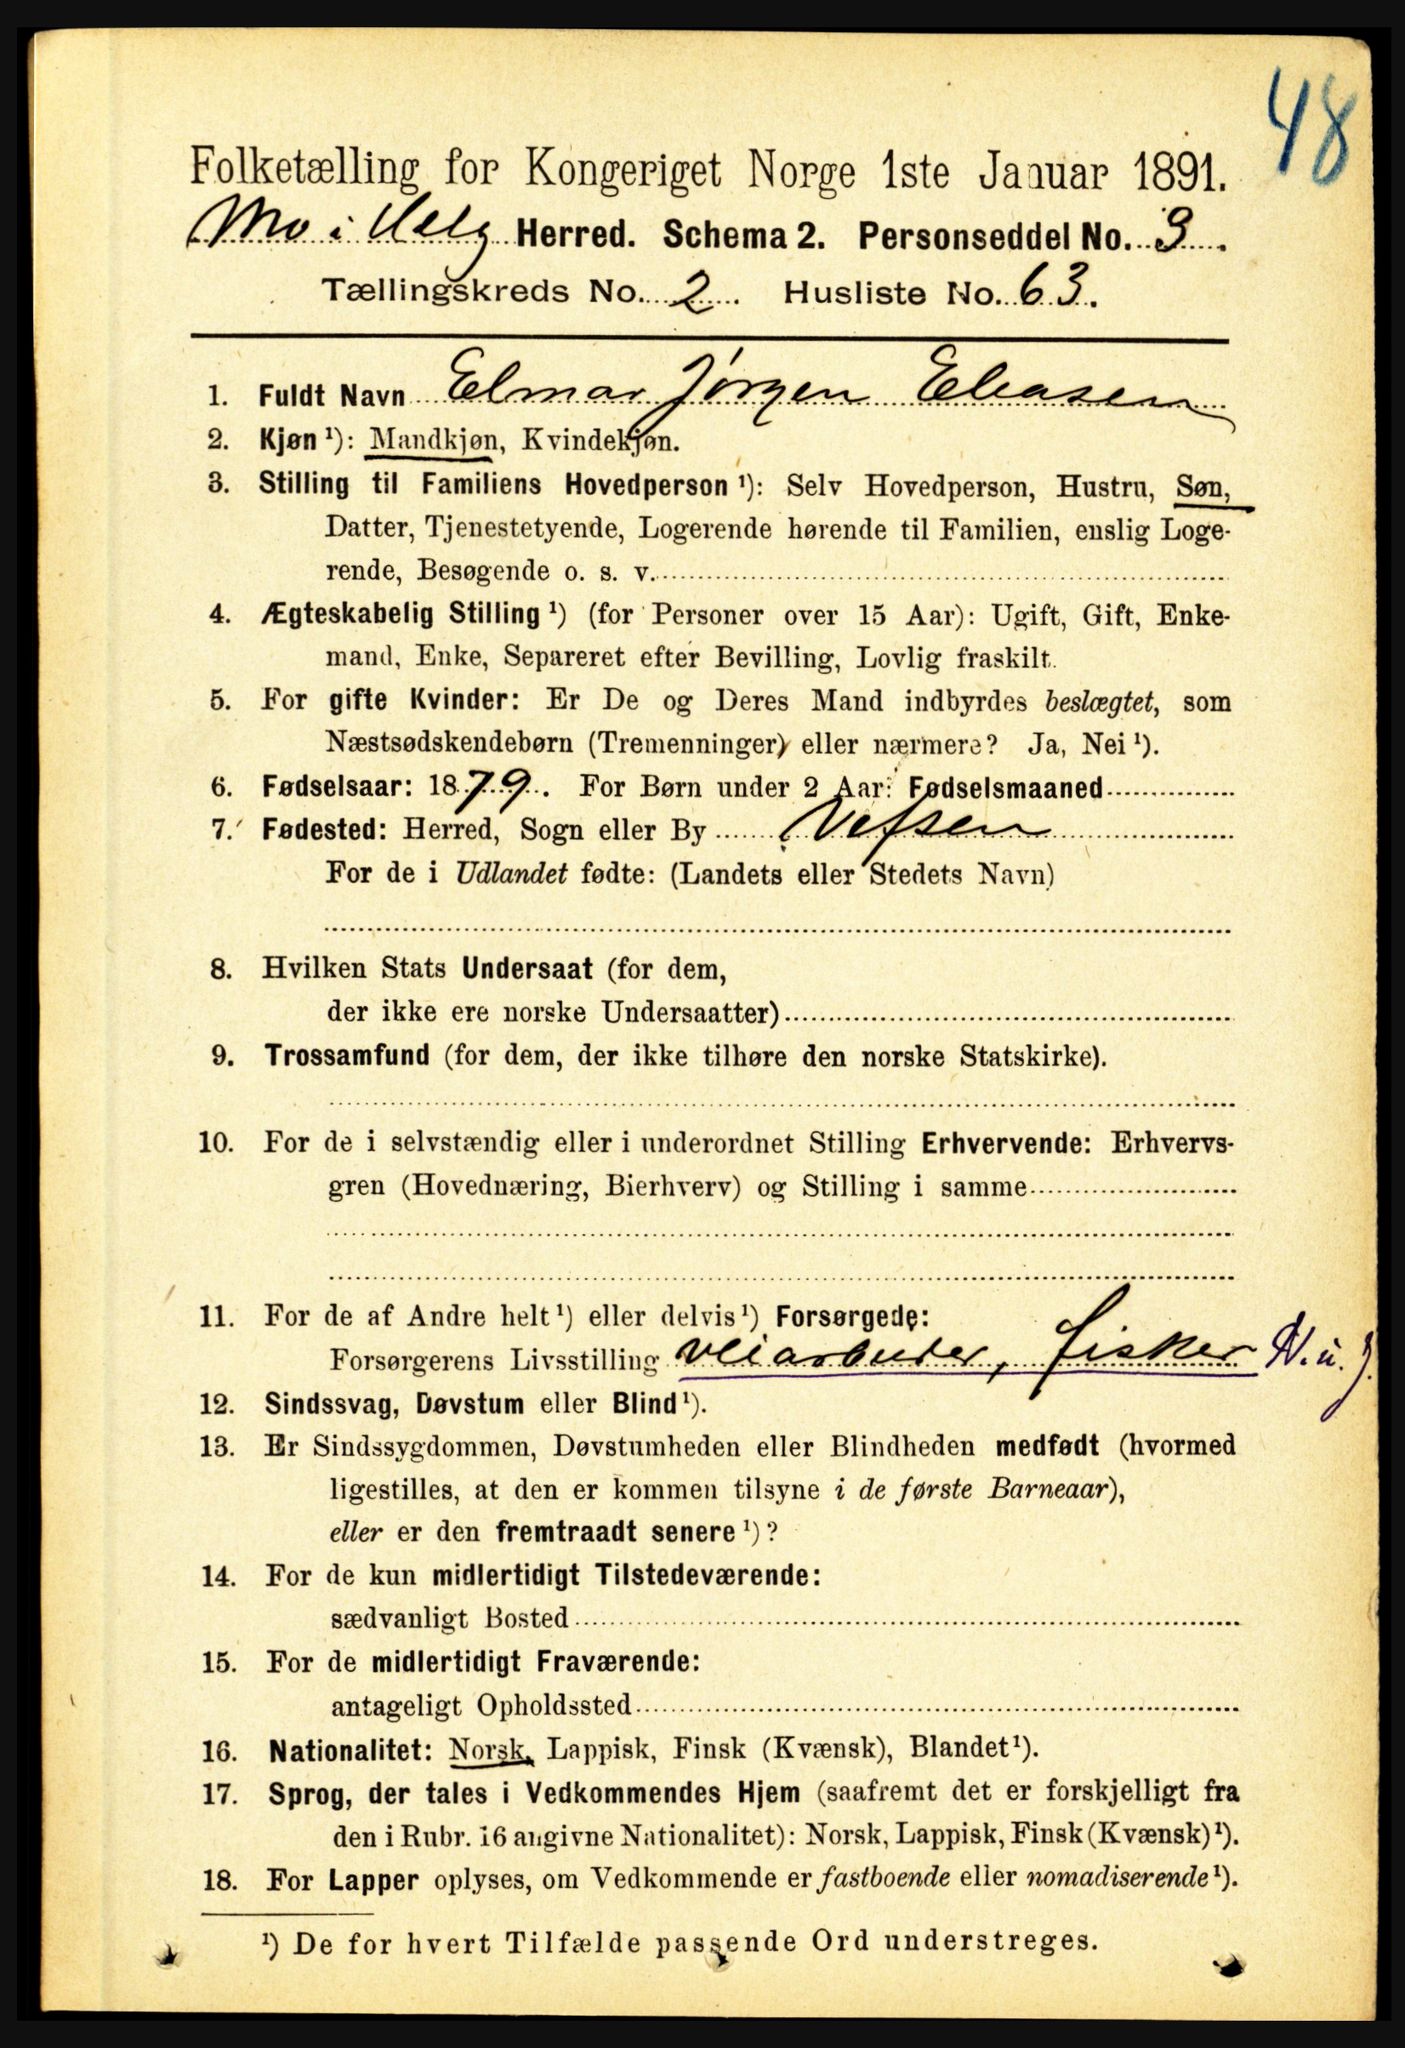 48
Folketælling for Kongeriget Norge 1ste Januar 1891.
Mo i Helg Herred. Schema 2. Personseddel No. 3.
Tællingskreds No. 2. Husliste No. 63.
1. Fuldt Navn Elmar Jørgen Eliasen
2. Kjøn ¹): Mandkjøn, Kvindekjøn.
3. Stilling til Familiens Hovedperson ¹): Selv Hovedperson, Hustru, Søn,
Datter, Tjenestetyende, Logerende hørende til Familien, enslig Loge-
rende, Besøgende o. s. v.
4. Ægteskabelig Stilling ¹) (for Personer over 15 Aar): Ugift, Gift, Enke-
mand, Enke, Separeret efter Bevilling, Lovlig fraskilt.
5. For gifte Kvinder: Er De og Deres Mand indbyrdes beslægtet, som
Næstsødskendebørn (Tremenninger) eller nærmere? Ja, Nei ¹).
6. Fødselsaar: 1879. For Børn under 2 Aar: Fødselsmaaned
7. Fødested: Herred, Sogn eller By Vefsen
For de i Udlandet fødte: (Landets eller Stedets Navn)
8. Hvilken Stats Undersaat (for dem,
der ikke ere norske Undersaatter)
9. Trossamfund (for dem, der ikke tilhøre den norske Statskirke).
10. For de i selvstændig eller i underordnet Stilling Erhvervende: Erhvervs-
gren (Hovednæring, Bierhverv) og Stilling i samme
11. For de af Andre helt ¹) eller delvis ¹) Forsørgede:
Forsørgerens Livsstilling veiarbeider, fisker
12. Sindssvag, Døvstum eller Blind ¹).
13. Er Sindssygdommen, Døvstumheden eller Blindheden medfødt (hvormed
ligestilles, at den er kommen tilsyne i de første Barneaar),
eller er den fremtraadt senere ¹)?
14. For de kun midlertidigt Tilstedeværende:
sædvanligt Bosted
15. For de midlertidigt Fraværende:
antageligt Opholdssted
16. Nationalitet: Norsk, Lappisk, Finsk (Kvænsk), Blandet ¹).
17. Sprog, der tales i Vedkommendes Hjem (saafremt det er forskjelligt fra
den i Rubr. 16 angivne Nationalitet): Norsk, Lappisk, Finsk (Kvænsk) ¹).
18. For Lapper oplyses, om Vedkommende er fastboende eller nomadiserende ¹).
¹) De for hvert Tilfælde passende Ord understreges.